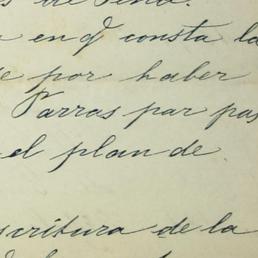 de
a en q consta la
e por haber
Parras par pas
el plan de
scritura de la